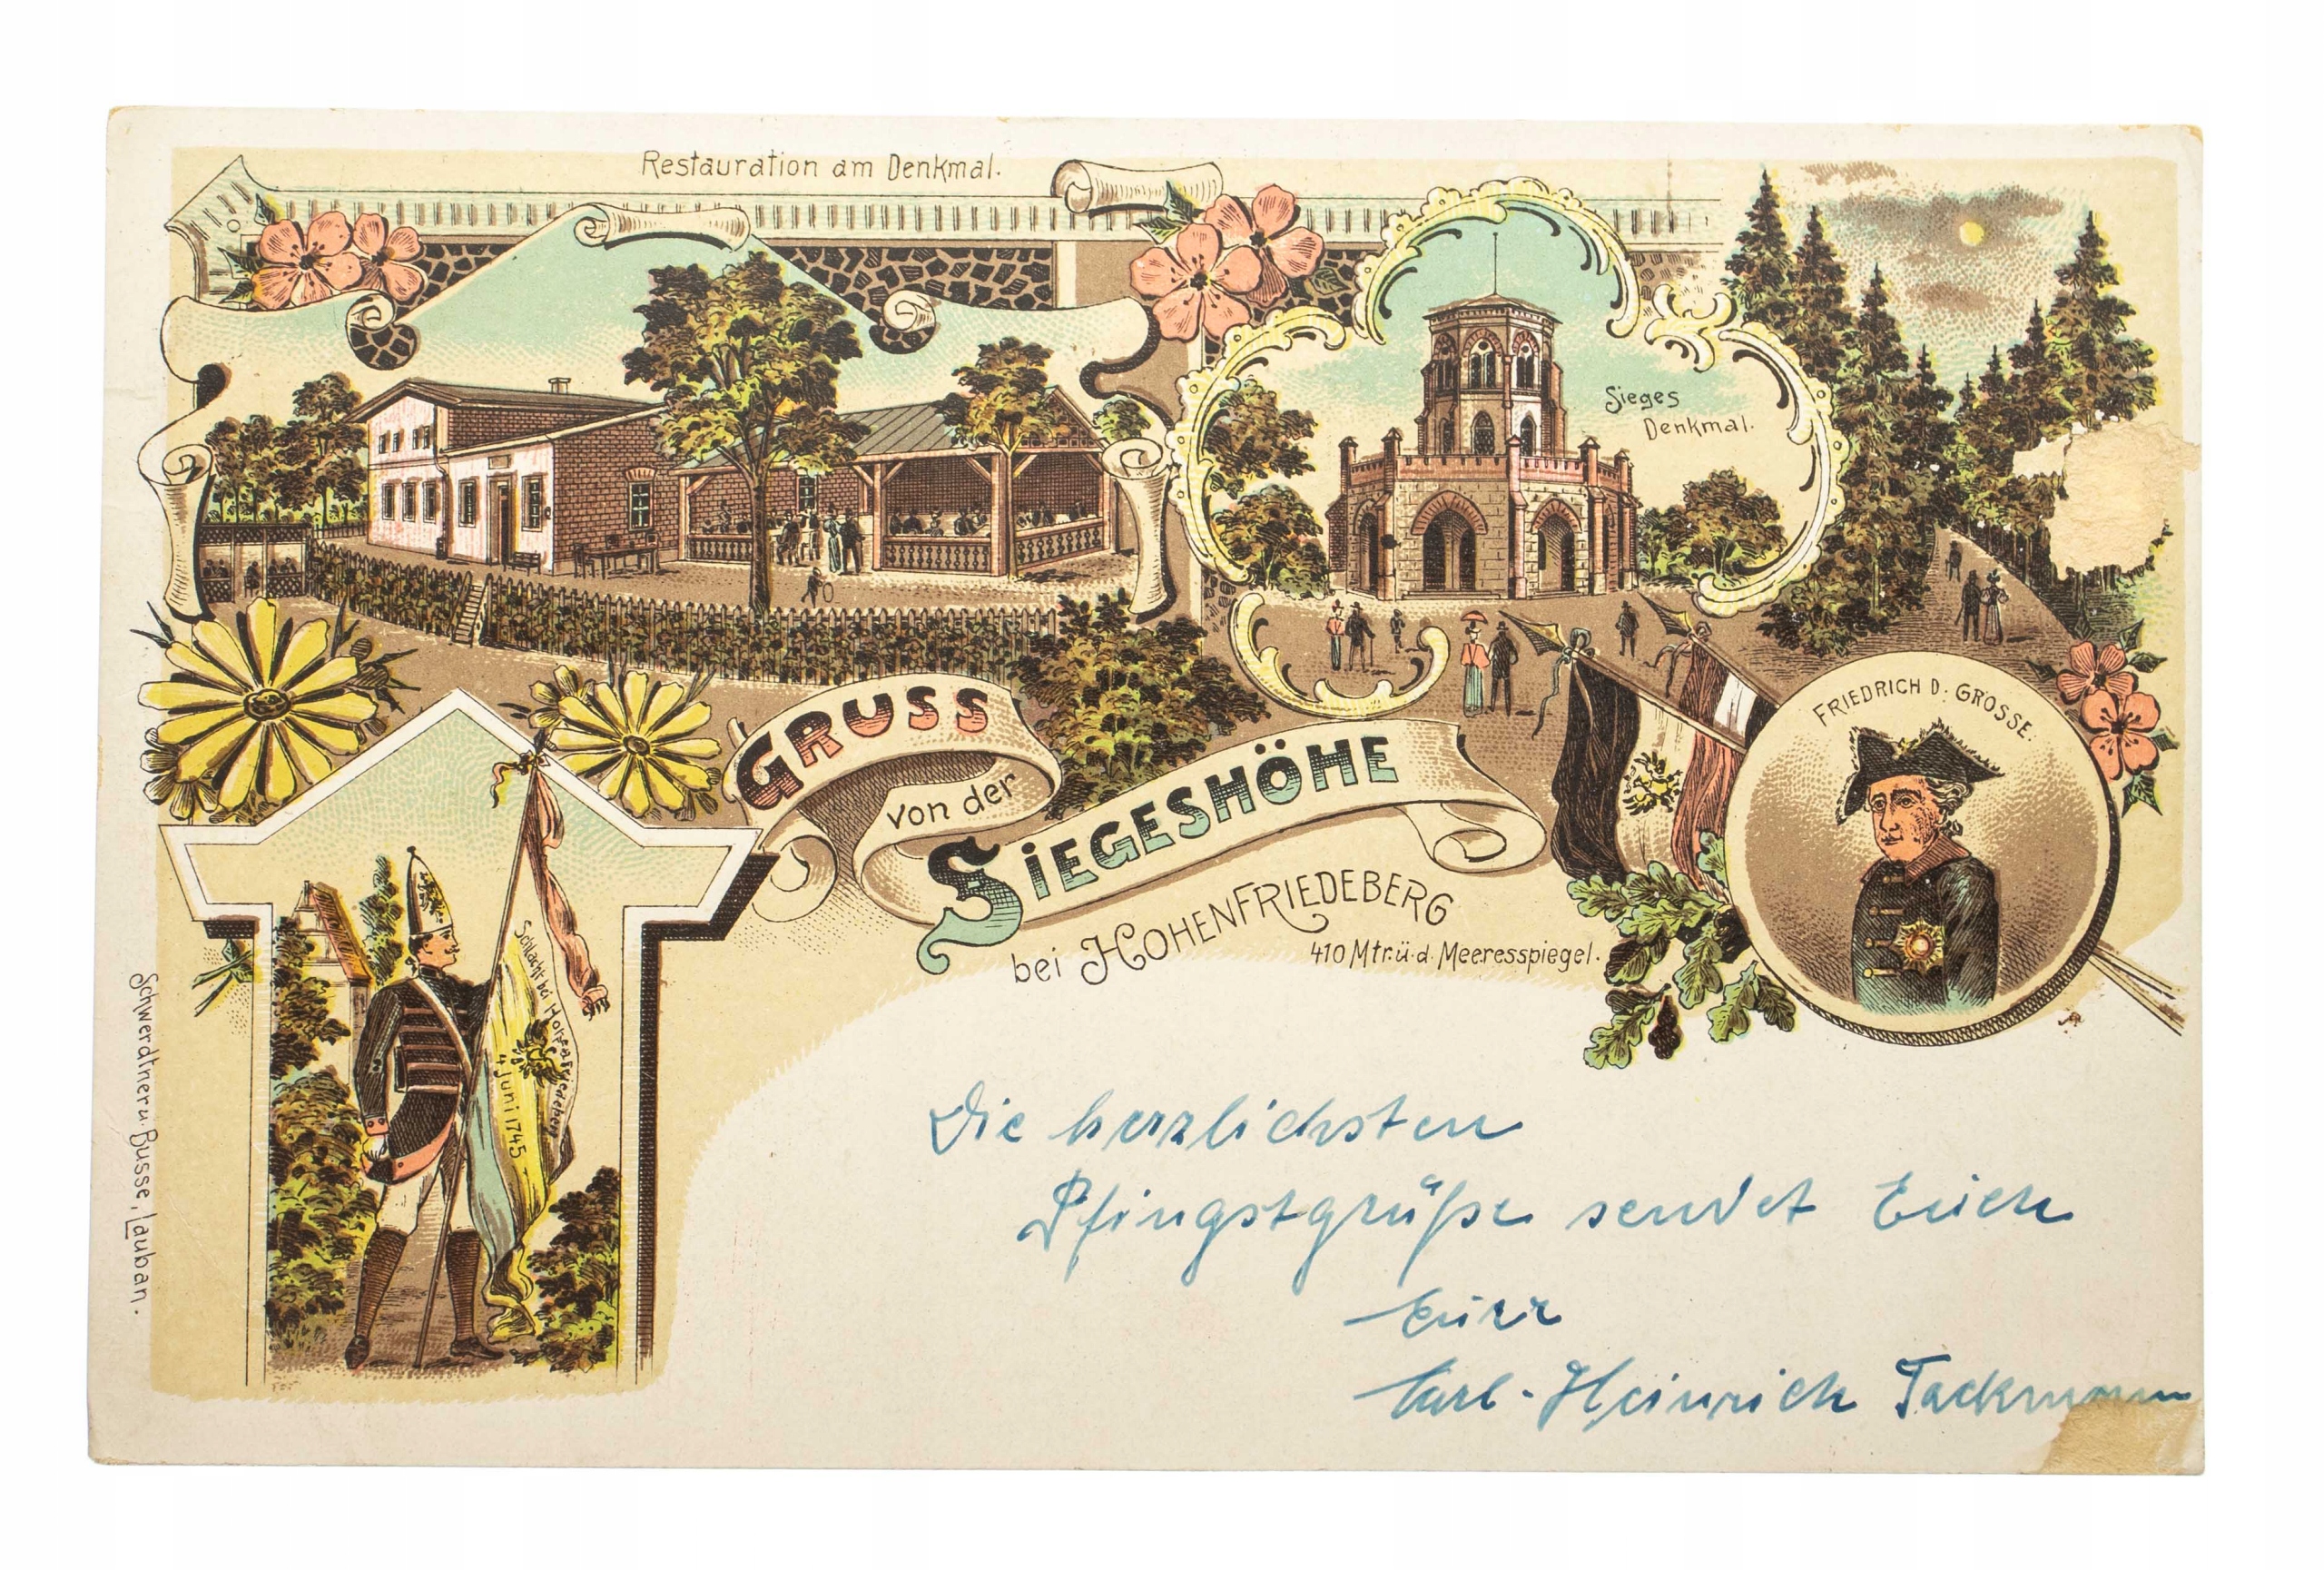 Restauration am Denkmal.
Sieges
Denkmal.
FRIEDRICH D. GROSSE.
GRUSS
von der
SIEGESHÖHE
bei HOHENFRIEDEBERG
410 Mtr. ü. d. Meeresspiegel.
Schlacht bei
4 Juni 1745
Schwerdtner u. Busse, Lauban.
Die herzlichsten
Pfingstgrüße sendet Euch
Euer
Carl-Heinrich Tackmann